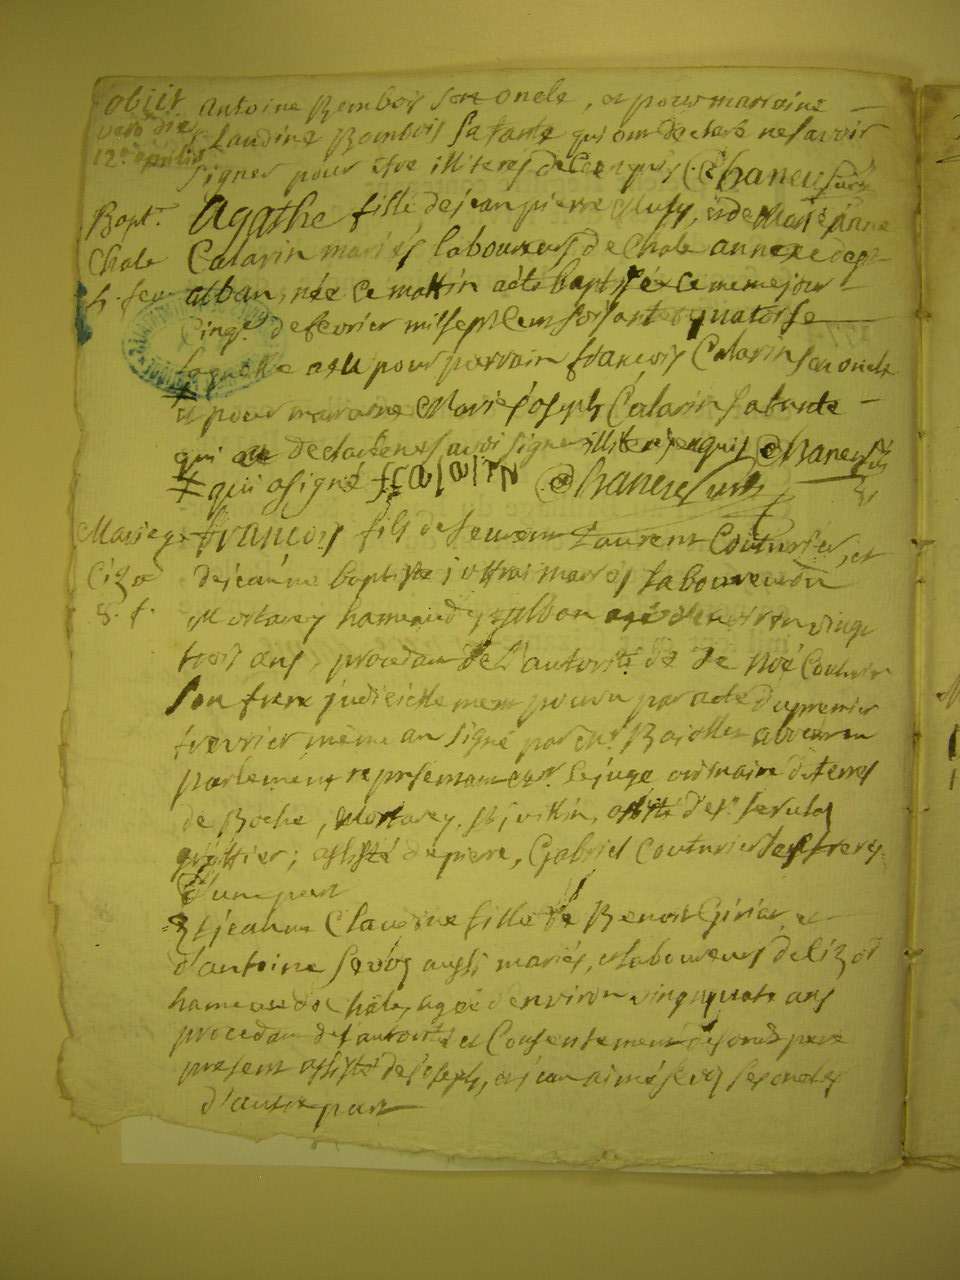 obiit
vero die
12 aprilis
antoine Bombois son oncle, et pour marraine
Claudine Bombois sa tante qui ont declaré ne savoir
signer pour être illiterés de ce enquis Chaneu Curé
Bapt.
Chale
5. fev.
Agathe fille de jean pierre et de Marie Anne
Calarin mariés laboureurs de Chale annexe de st
alban, née ce mattin a été baptisée ce meme jour
cinq de fevrier mil sept cent soisante quatorse
laquelle a eu pour parrain françois Calarin son oncle
et pour maraine Marie joseph Calarin sa tante
qui a declaré ne savoir signer illiterée enquis Chaneu Curé
qui a signé f Calarin Chaneu Curé
Mariage
Cize
5. f.
françois fils de feu Laurent Couturier, et
de jeanne baptiste mariés laboureur
Mortarey hameau de st alban agé d'environ vingt
trois ans, procedant de l'autorité de Noé Couturier
son frere judiciellement pourvu par acte du premier
fevrier même an signé par Me Bajollet avocat en
parlement representant le juge ordinaire des terres
de Boche, Mortarey, assisté de
greffier; assisté de pierre, Gabriel Couturier ses freres
d'une part
Et jeanne Claudine fille de Benoit Girier, et
d'antoine Sevoz aussi mariés, et laboureurs de Cize
hameau de Chale, agée d'environ vingt quatre ans
procedant de l'autorité et Consentement de son dt pere
present assisté de joseph, et jean aimé Sevoz ses oncles
d'autre part